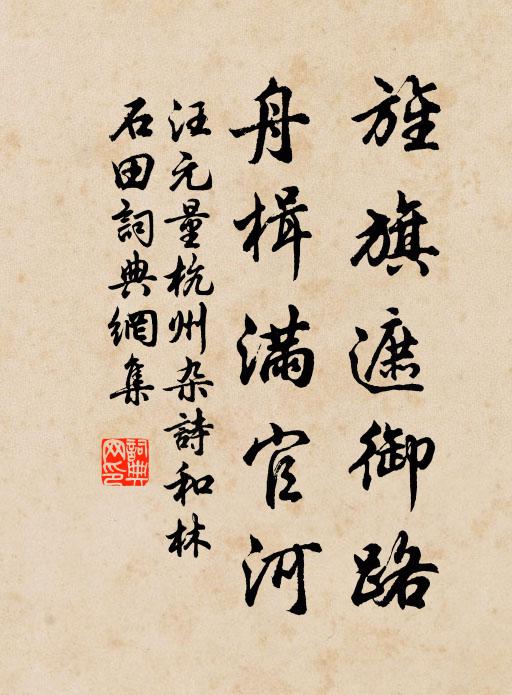 旌旗遮御路
舟楫滿官河
汪元量杭州杂詩和林
石田詞典網集
詞典
网印